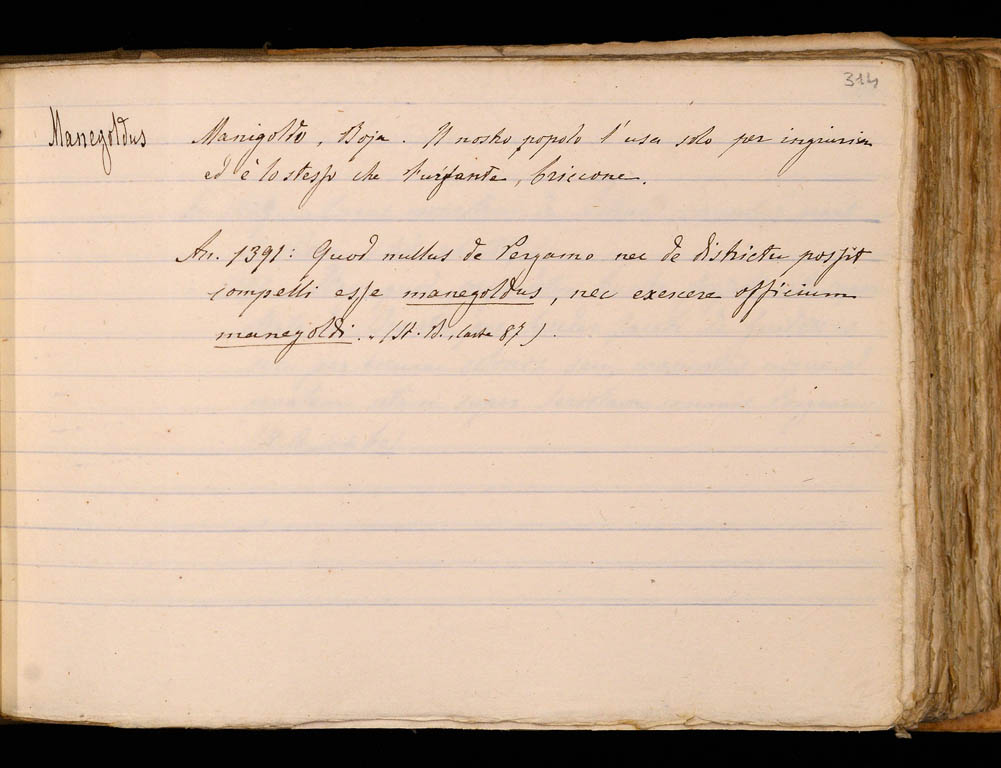 314
Manegoldus Manigoldo, Boja. Il nostro popolo l'usa solo per ingiuria
ed è lo stesso che furfante, briccone.
An. 1391: Quod nullus de Pergamo nec de districtu possit
compelli esse manegoldus, nec exercere officium
manegoldi. „ (St. B., carta 87).